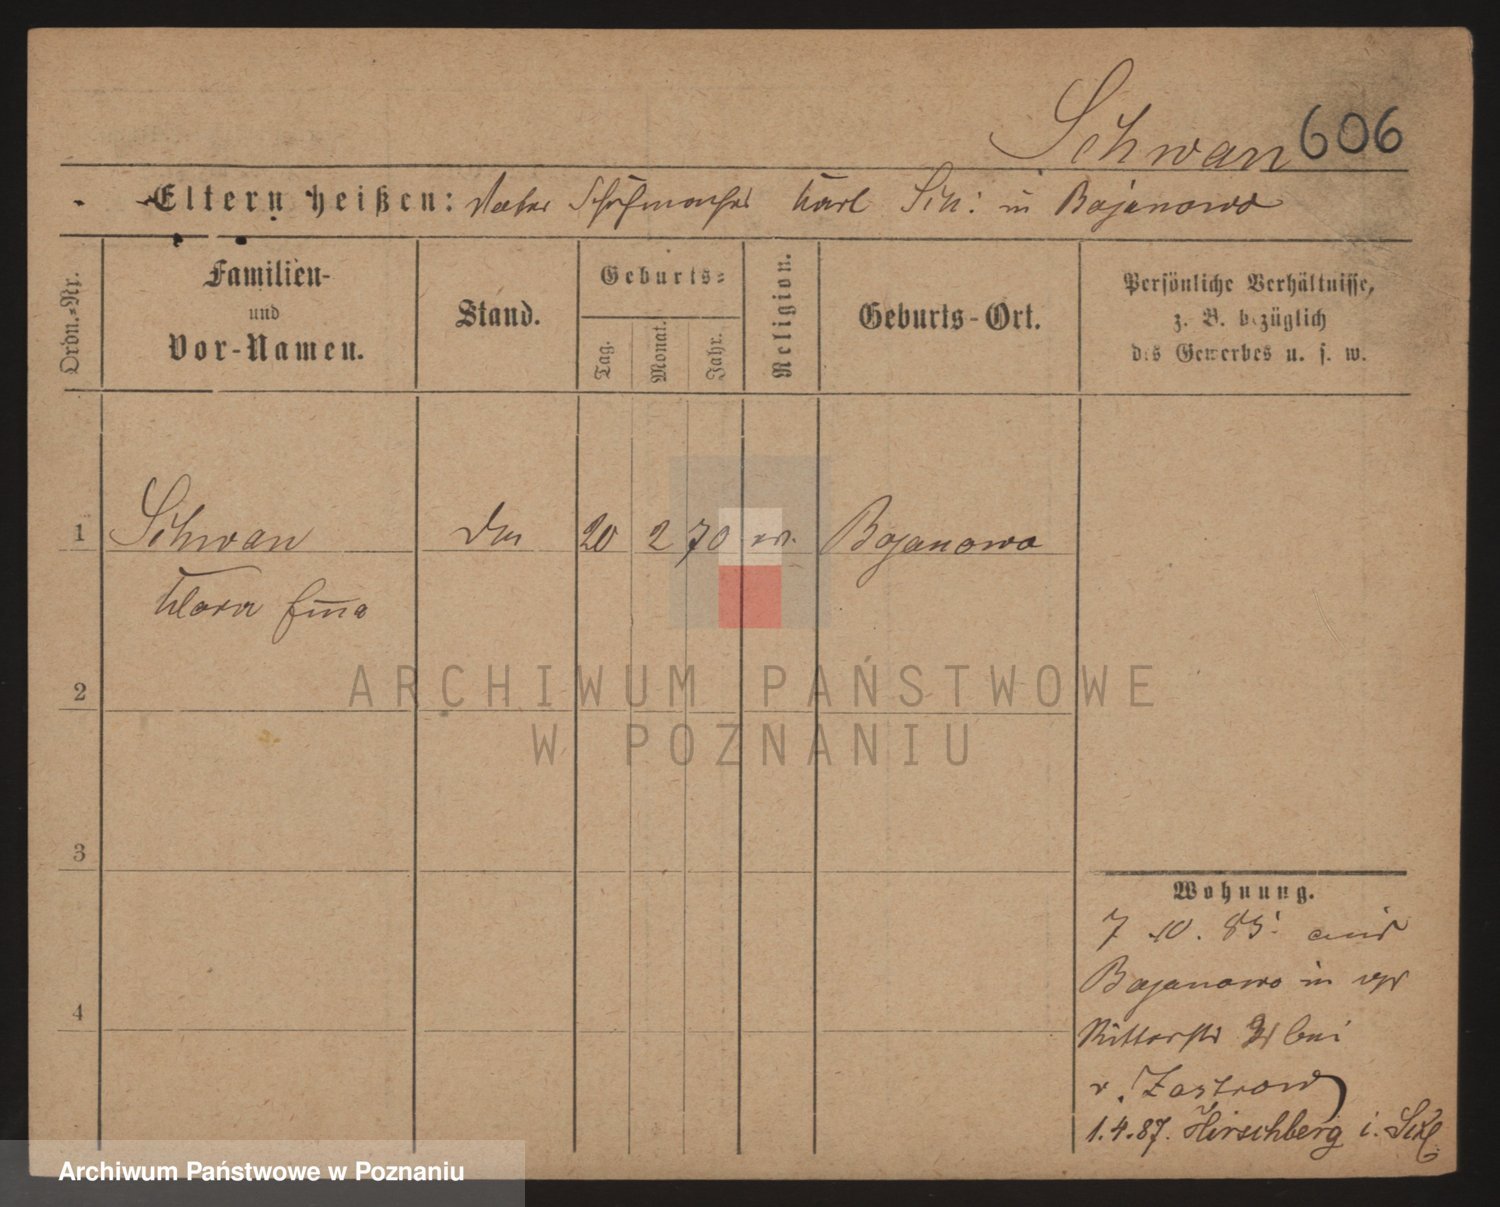 Schwan 606
Eltern heißen: Vater Schuhmacher Karl Sch: in Bojanowo
Ordn.-Nr.
Familien-
und
Vor-Namen.
Stand.
Geburts-
Tag.
Monat.
Jahr.
Religion.
Geburts-Ort.
Persönliche Verhältnisse,
z. B. bezüglich
des Gewerbes u. s. w.
1 Schwan 20 2 70 ev. Bojanowo
Klara Emma
2
ARCHIWUM PAŃSTWOWE
W POZNANIU
3
4
Wohnung.
7 10. 85. aus
Bojanowo in
Ritterstr bei
v. Zastrow
1.4.87. Hirschberg i. Schl
Archiwum Państwowe w Poznaniu